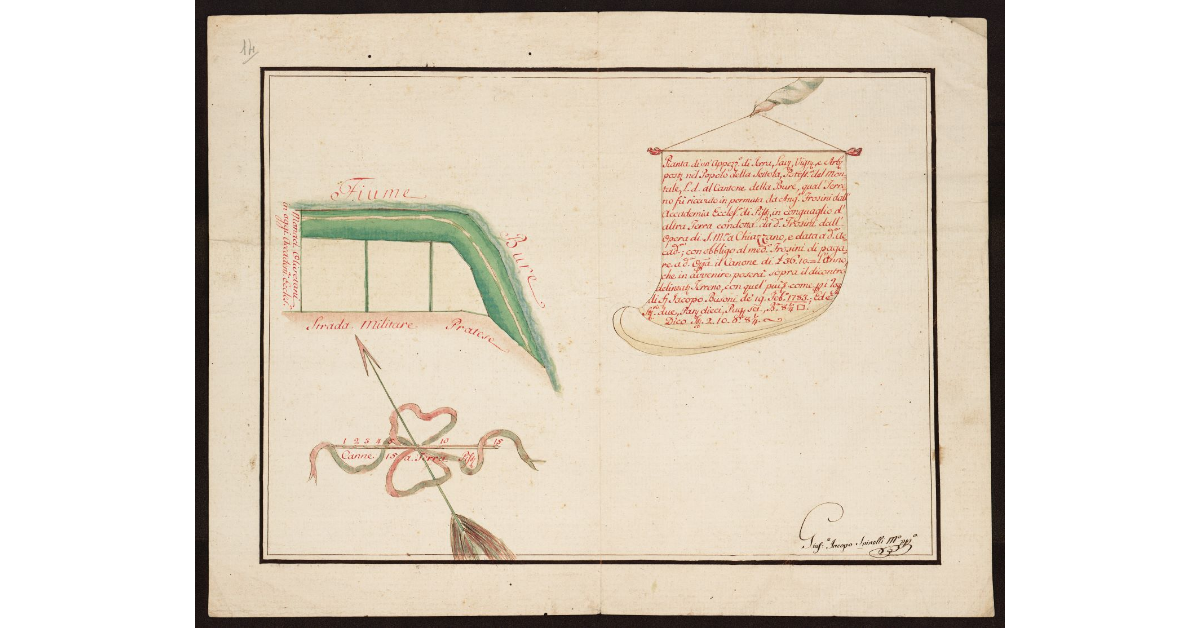 14
Fiume
Bure
Strada Militare Pratese
1 2 3 4 5 10 15
Canne 15 a Terra
Pianta di un' Appezz.º di Terra, Lav.ª, Vign.ª, e Arb.ª
post.ª nel Popolo della Scitola, Potest.ª del Mon-
tale, L. d. al Cantone della Bure, qual Terre-
no fù ricevuto in permuta da Aug.º Frosini dall'
Accademia Eccles.ª di Pist.ª, in conguaglio d'
altra Terra condotta da d.º Frosini dall'
Opera di S. M.ª a Chiazzano, e data a d.ª Ac-
cad.ª; con obbligo al med.º Frosini di paga-
re a d.ª Op.ª il Canone di
che in avvenire poserà sopra il dicontro
delineat.º Terreno, con quel più, come
di Jacopo Busoni de' 19. 1783. Ed è
due,
Dico 2. 10. 6.
Jacopo Spinelli